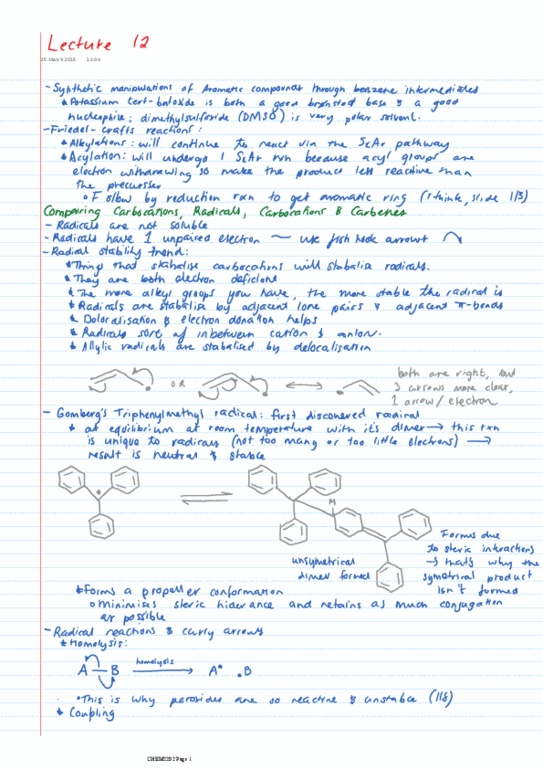 Lecture 12
15 March 2018 11:04
- Synthetic manipulations of Aromatic compounds through benzene intermediates
* Potassium tert-butoxide is both a good brønsted base & a good
nucleophile; dimethylsulfoxide (DMSO) is very polar solvent.
- Friedel-crafts reactions:
* Alkylations: will continue to react via the SEAr pathway
* Acylation: will undergo 1 SEAr rxn because acyl groups are
electron withdrawing so make the product less reactive than
the precursor
o Follow by reduction rxn to get aromatic ring (I think, slide 113)
Comparing Carbocations, Radicals, Carbocations & Carbenes
- Radicals are not soluble
- Radicals have 1 unpaired electron — use fish hook arrows
- Radial stability trend:
* Thing that stabalise carbocations will stabalise radicals.
* They are both electron deficient
* The more alkyl groups you have, the more stable the radical is
* Radicals are stabalise by adjacent lone pairs & adjacent π-bonds
* Delocalisation & electron donation helps
* Radicals sort of inbetween cation & anion.
* Allylic radicals are stabalised by delocalisation
OR
both are right, but
3 arrows more clear,
1 arrow/electron
- Gomberg's Triphenylmethyl radical: first discovered radical
* at equilibrium at room temperature with it's dimer → this rxn
is unique to radicals (not too many or too little electrons) →
result is neutral & stable
H
unsymetrical
dimer formed
Forms due
to steric interactions
→ that's why the
symetrical product
isn't formed
* Forms a propeller conformation
o Minimises steric hiderance and retains as much conjugation
as possible
- Radical reactions & curly arrows
* Homolysis:
A—B homolysis → A• •B
• This is why peroxides are so reactive & unstable (118)
* Coupling
CHEM2202 Page 1